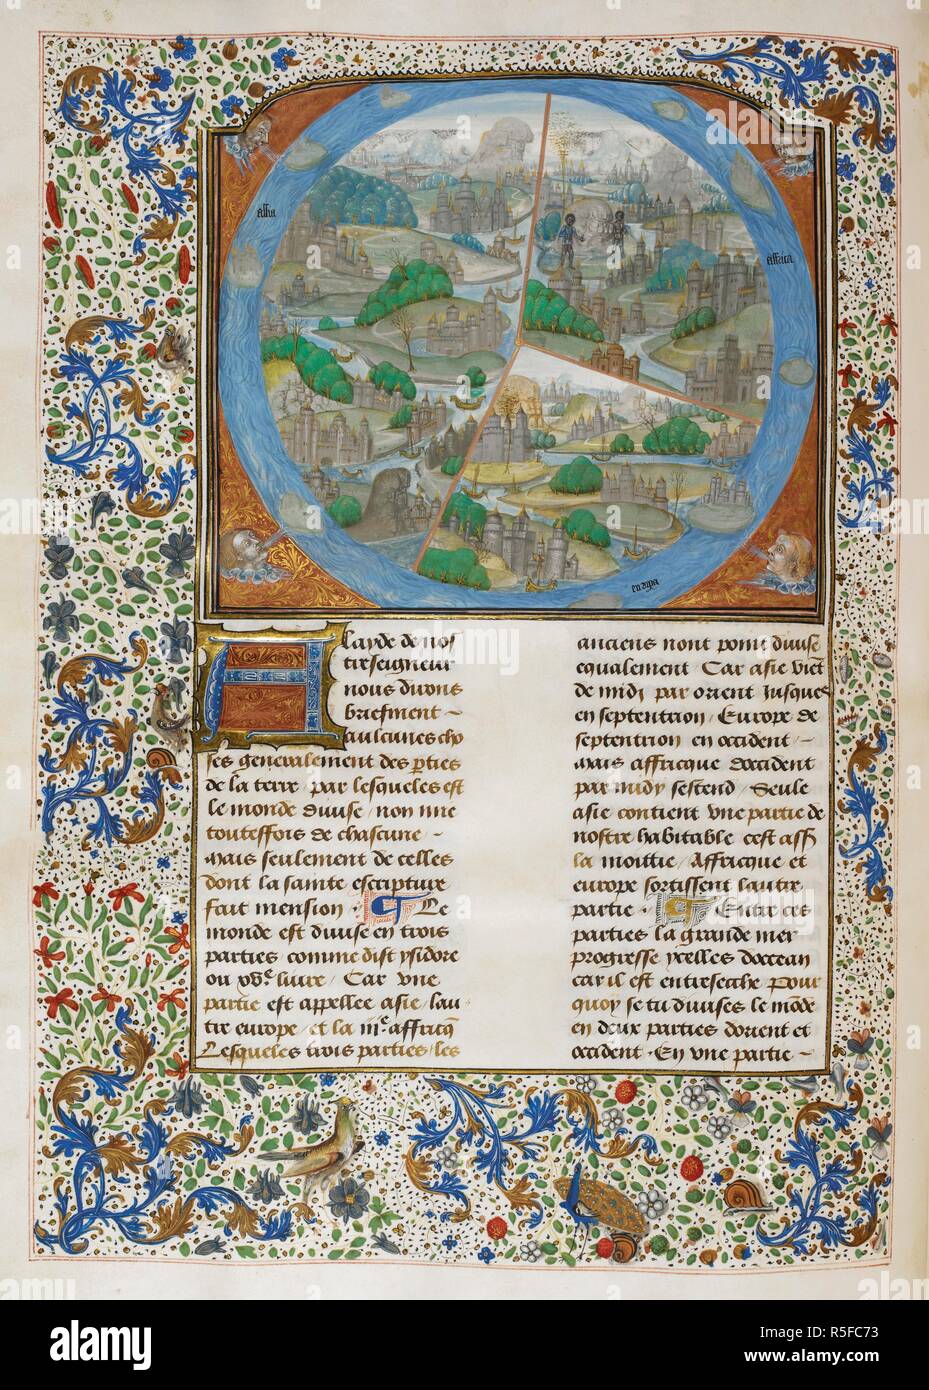 assia
affrica
europa
A layde de nos
treseigneur
nous divons
briefment
aulcunes cho
ses generalement des pties
de la terre, par lesquelles est
le monde divise, non mie
touteffois de chascune,
Mais seulement de celles
dont la sainte escripture
fait mension. Le
monde est divise en trois
parties comme dist ysidore
ou livre, Car une
partie est appellee asie, lau
tre europe, et la affricq
Lesqueles trois parties les
anciens nont point divise
equalement Car asie vient
de midi par orient jusques
en septentrion, Europe de
septentrion en occident,
Mais affricque doccident
par midy sestend, Seule
asie contient une partie de
nostre habitable cest assz
la moittie, Affricque et
europe sortissent lautre
partie. Entre ces
parties la grande mer
progresse ycelles doccean
car il est entreseche Pour
quoy se tu divises le monde
en deux parties dorient et
occident. En une partie
alamy
Image ID: R5FC73
www.alamy.com